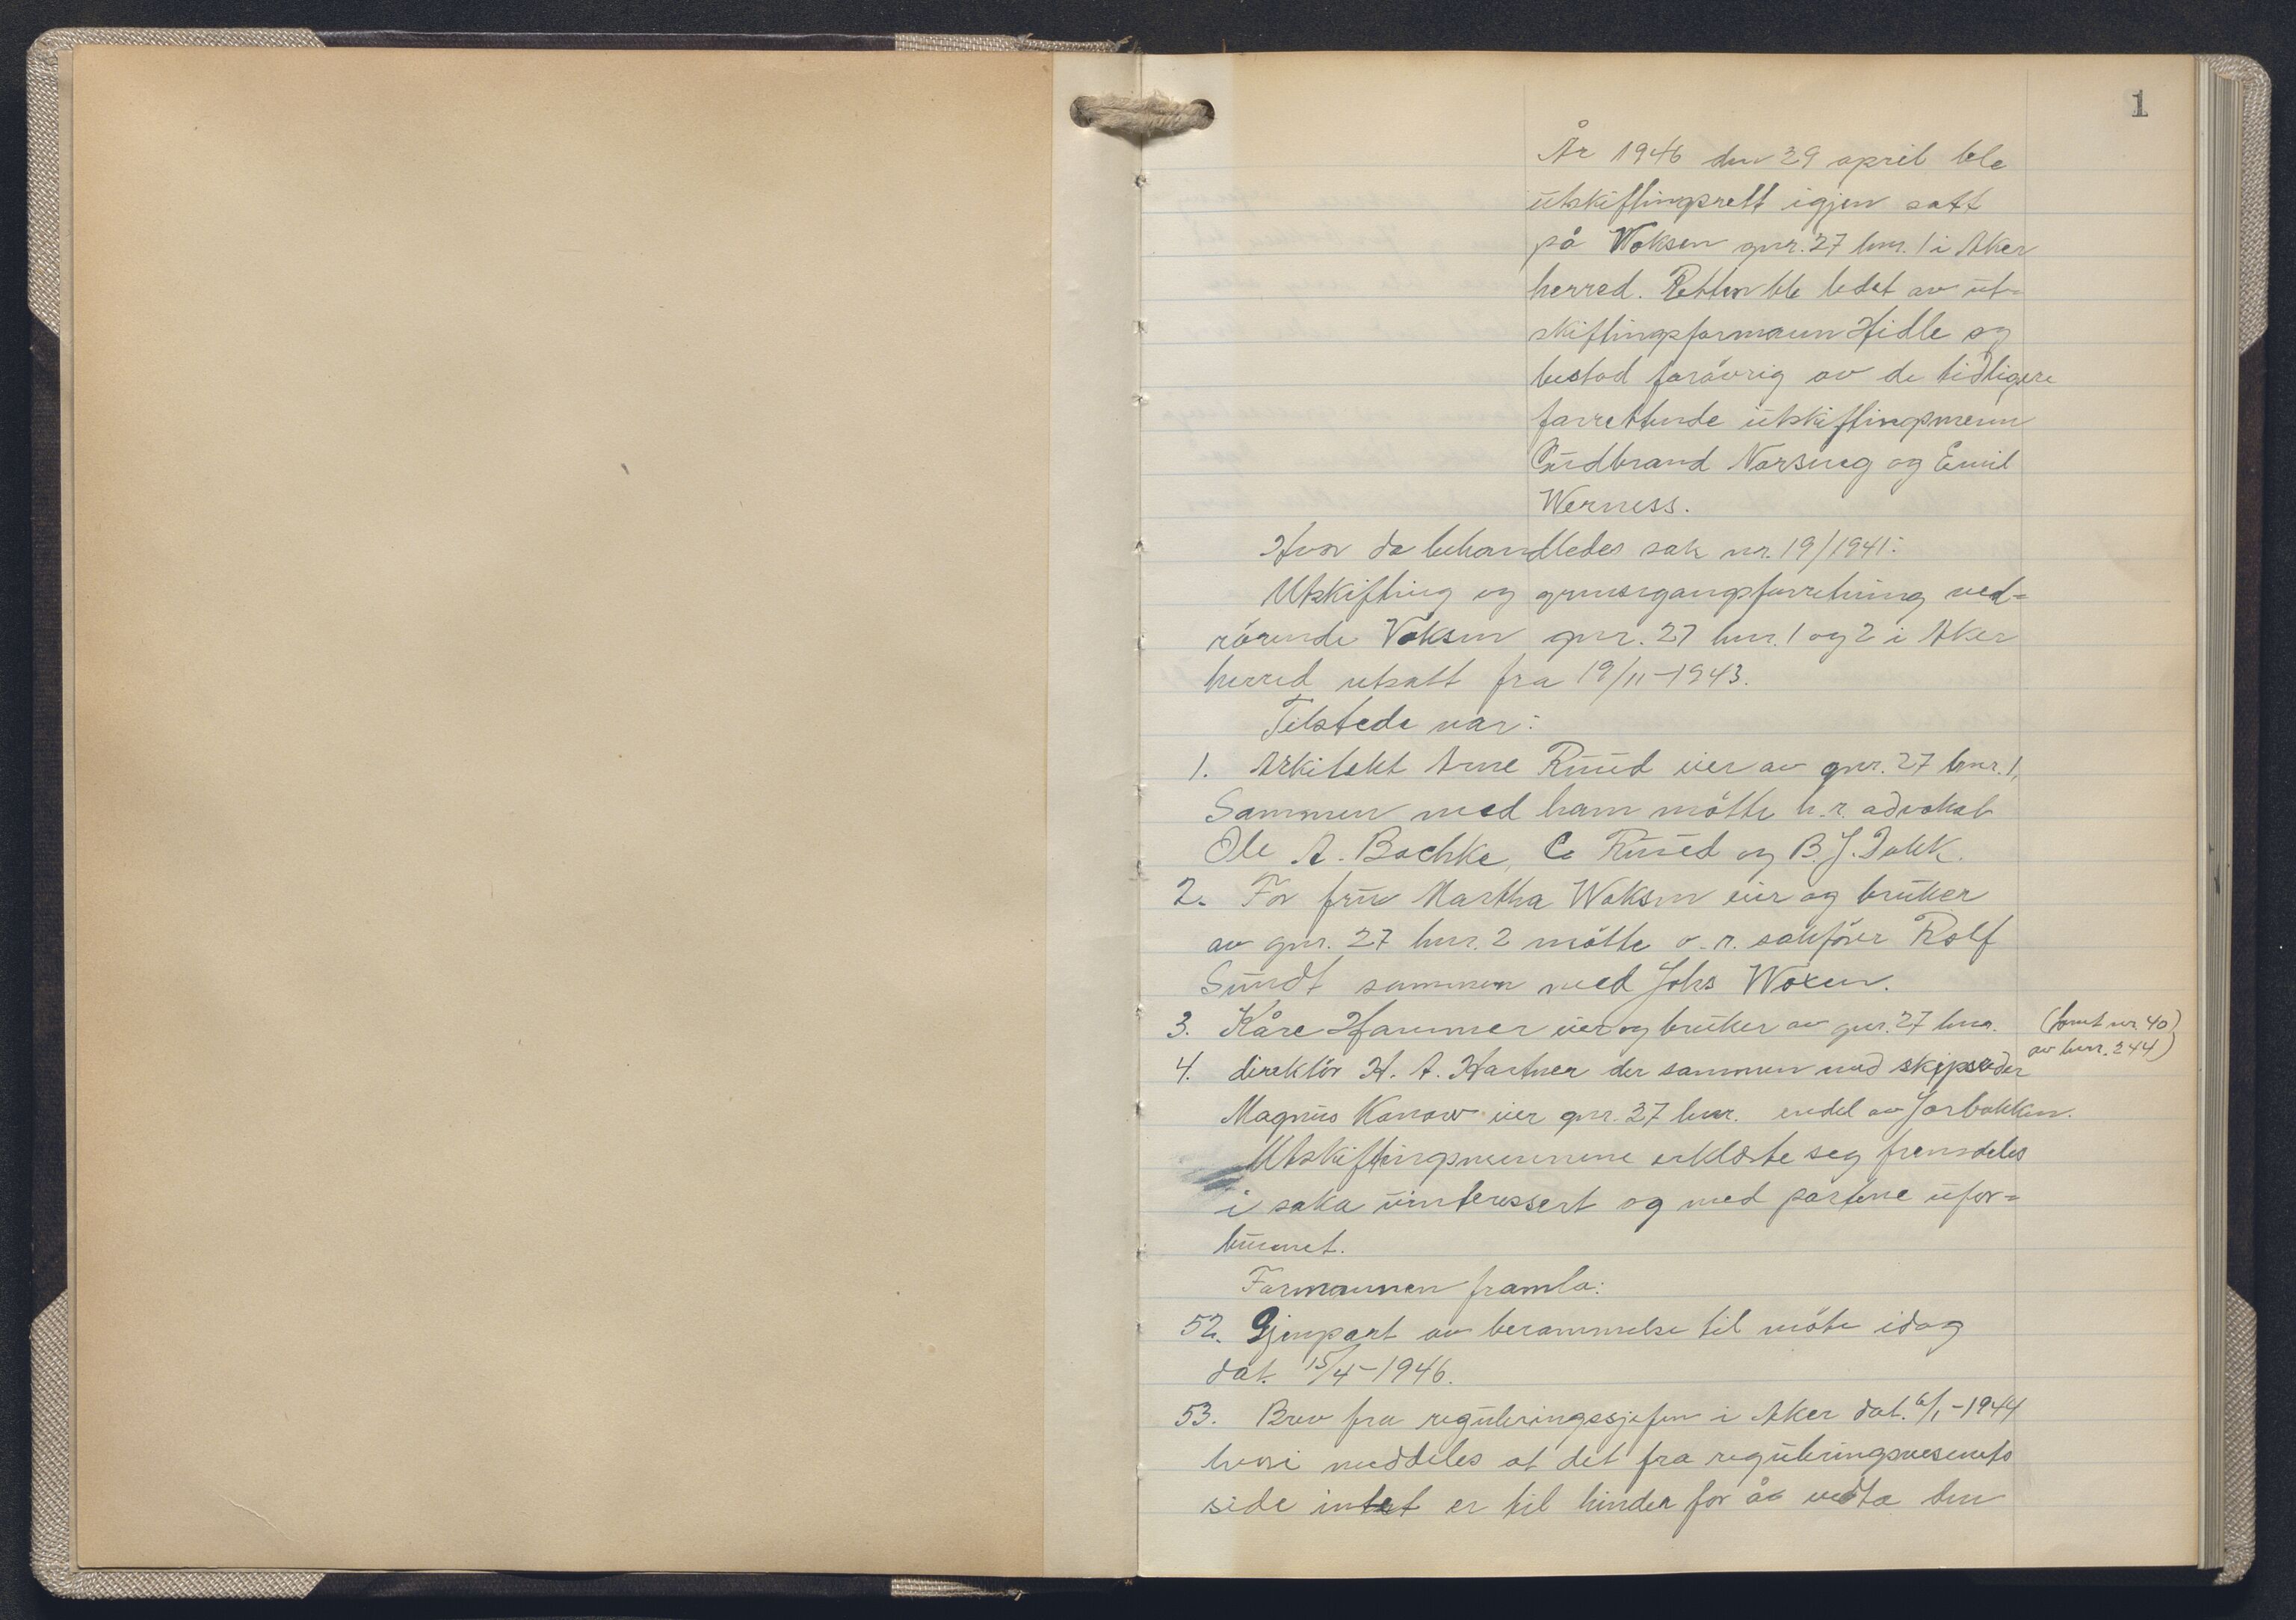 1
År 1946 den 29 april ble
utskiftingsrett igjen satt
på Woksen gnr. 27 bnr. 1 i Aker
herred. Retten ble ledet av ut-
skiftingsformann Hidle og
bestod forøvrig av de tidligere
forrettende utskiftingsmenn
Gudbrand Norsveg og Emil
Werness.
Hvor da behandledes sak nr. 19/1941:
Utskifting og grensegangsforretning ved-
rörende Voksen gnr. 27 bnr. 1 og 2 i Aker
herred utsatt fra 19/11-1943.
Tilstede var:
1. Arkitekt Arne Ruud eier av gnr. 27 bnr. 1,
Sammen med ham mötte h.r. advokat
Ole A. Bachke, C. Ruud og B. J. Dakk.
2. For fru Martha Woksen eier og bruker
av gnr. 27 bnr. 2 mötte o.r. sakförer Rolf
Sundt sammen med Johs Woxen.
3. Kåre Hammer eier og bruker av gnr. 27 bnr. (tomt nr. 40)
av bnr. 244)
4. direktör H. A. Hartner der sammen med skipsreder
Magnus Konow eier gnr. 27 bnr. endel av Jarbakken.
Utskiftingsmennene erklærte seg fremdeles
i saka uinteressert og med partene ufor-
bunnet.
Formannen framla:
52. Gjenpart av berammelse til möte idag
dat. 15/4-1946.
53. Brev fra reguleringssjefen i Aker dat. 6/1-1944
hvori meddeles at det fra reguleringsvesenets
side intet er til hinder for å vedta den